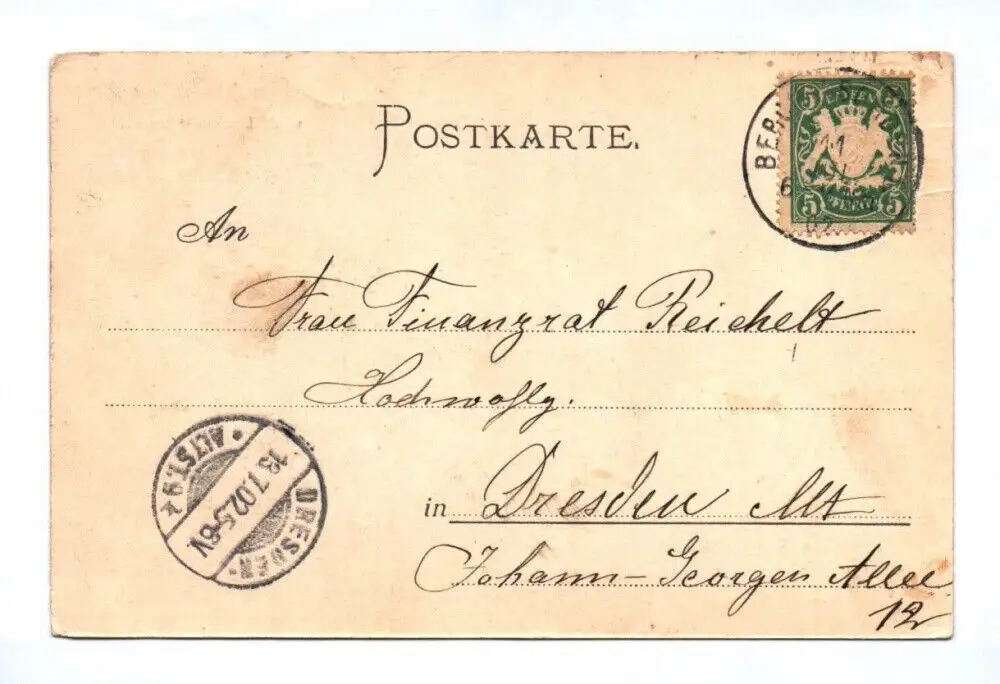 POSTKARTE.
5 5
5 5
BER
11
6
02
An
Frau Finanzrat Reichelt
Hochwohlg.
in Dresden Alt
Johann-Georgen Allee
12
DRESDEN
ALTST. 9
13.7.02.5-6V.